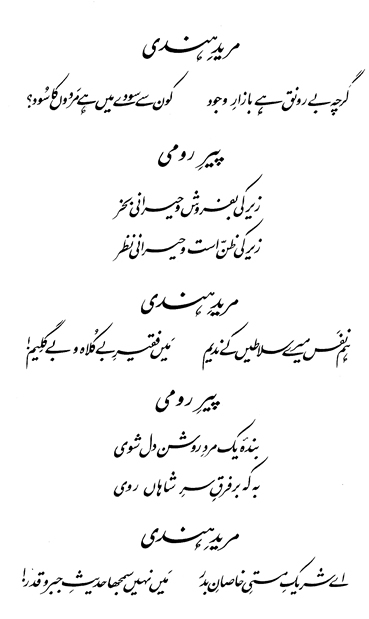 مریدِ ہندی
گرچہ بے رونق ہے بازارِ وجود کون سے سودے میں ہے مَردوں کا سُود؟
پیرِ رومی
زیرکی بفروش و حیرانی بخر
زیرکی ظنّ است و حیرانی نظر
مریدِ ہندی
ہم نفَس میرے سلاطیں کے ندیم مَیں فقیرِ بے کُلاہ و بے گلِیم!
پیرِ رومی
بندۂ یک مردِ روشن دل شوی
بہ کہ بر فرقِ سرِ شاہاں روی
مریدِ ہندی
اے شریکِ مستیِ خاصانِ بدر مَیں نہیں سمجھا حدیثِ جبر و قدر!